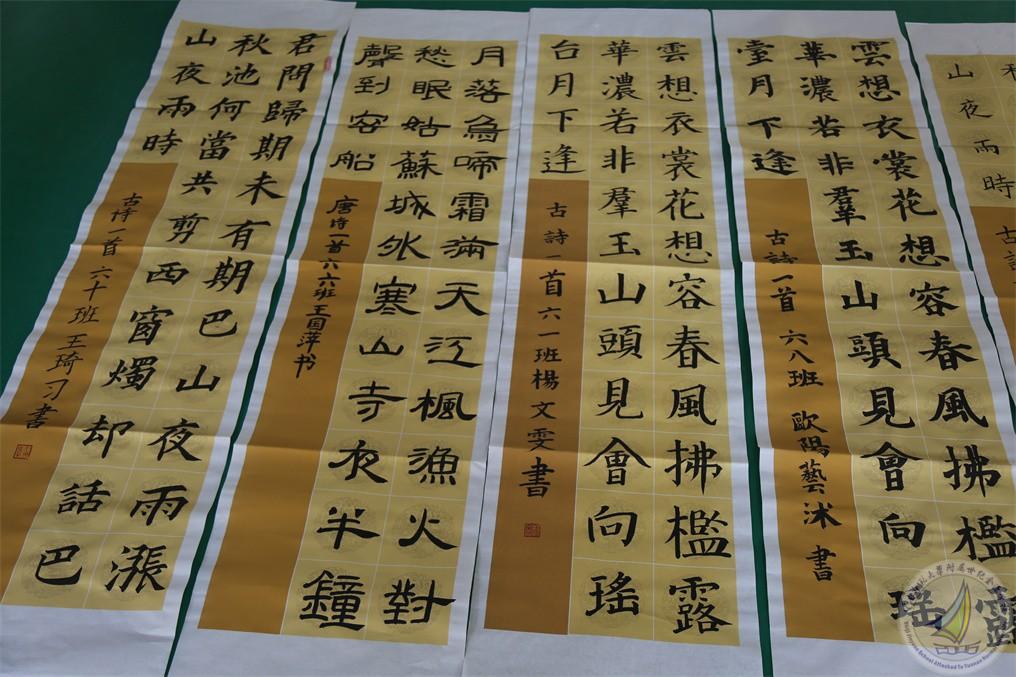 君問歸期未有期巴山夜雨漲
秋池何當共剪西窗燭却話巴
山夜雨時
古诗一首 六十班 王琦习書
月落烏啼霜滿天江楓漁火對
愁眠姑蘇城外寒山寺夜半鐘
聲到客船
唐诗一首六六班王国萍书
雲想衣裳花想容春風拂檻露
華濃若非羣玉山頭見會向瑤
台月下逢
古詩一首六一班楊文雯書
雲想衣裳花想容春風拂檻露
華濃若非羣玉山頭見會向瑤
臺月下逢
古詩一首 六八班 歐陽藝沭 書
山夜雨時
古詩